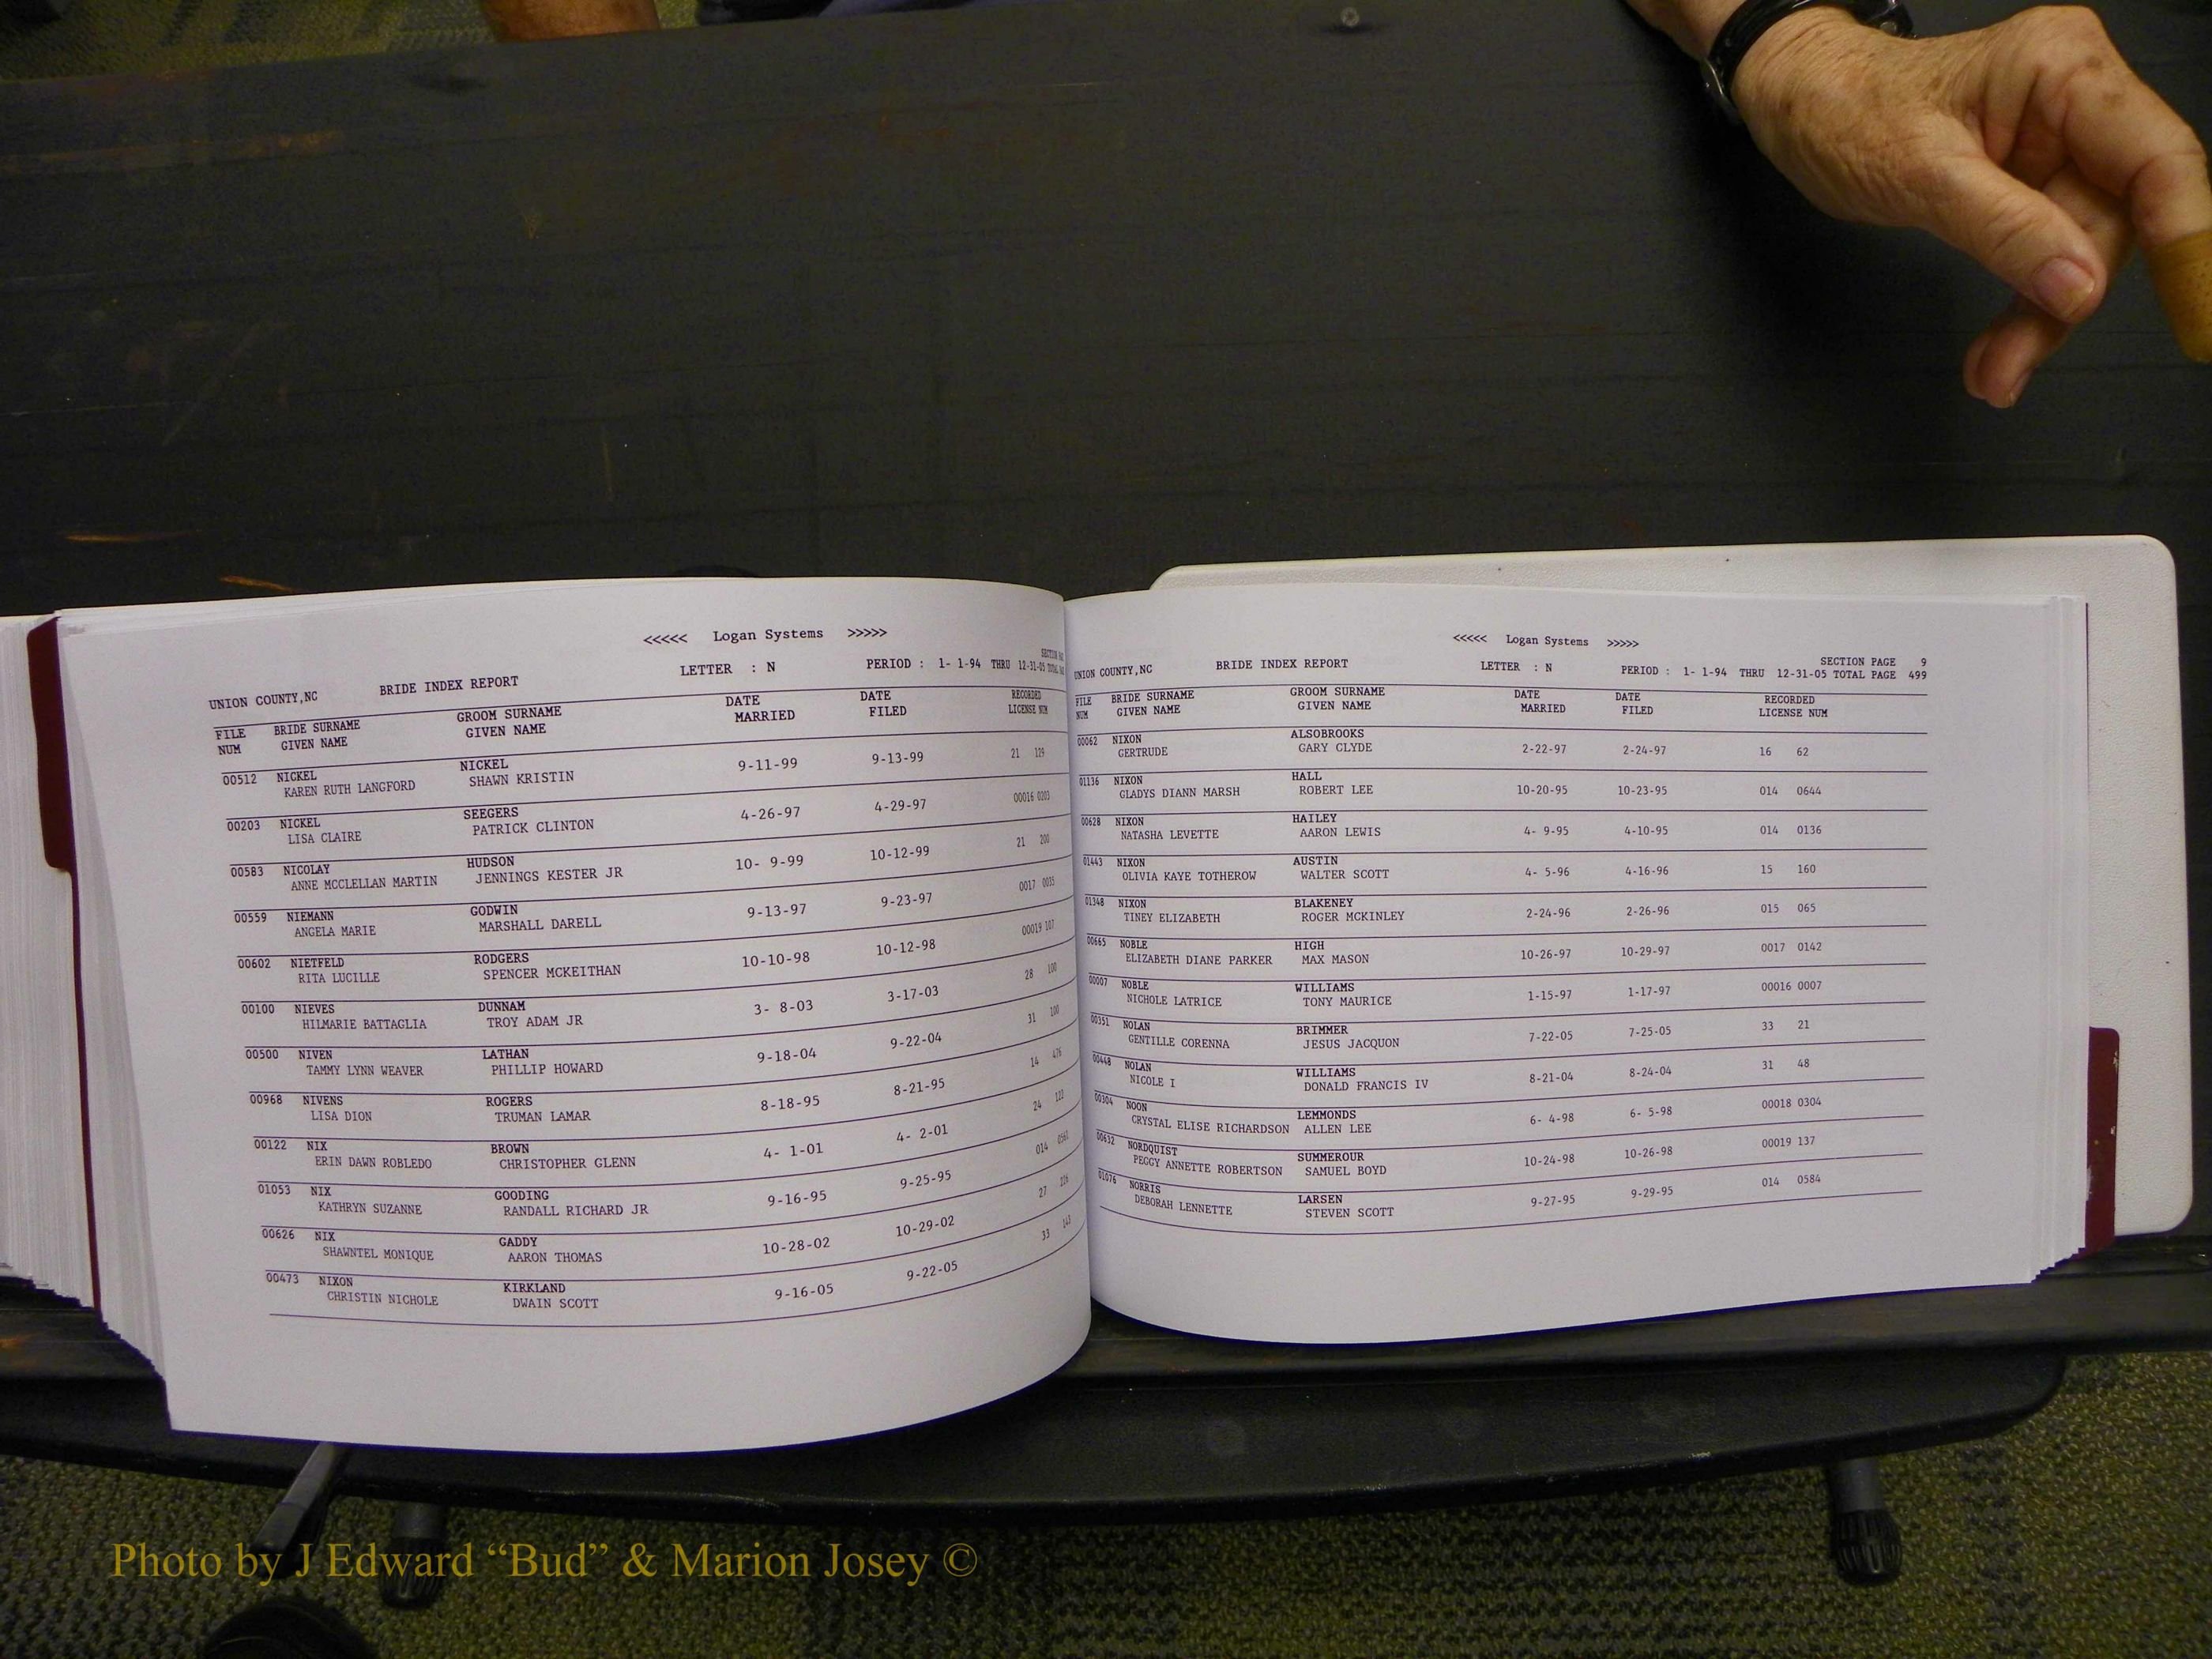 <<<<< Logan Systems >>>>>
SECTION
UNION COUNTY,NC BRIDE INDEX REPORT LETTER : N PERIOD : 1- 1-94 THRU 12-31-05 TOTAL
FILE BRIDE SURNAME GROOM SURNAME DATE DATE RECORDED
NUM GIVEN NAME GIVEN NAME MARRIED FILED LICENSE NUM
00512 NICKEL NICKEL 9-11-99 9-13-99 21 129
KAREN RUTH LANGFORD SHAWN KRISTIN
00203 NICKEL SEEGERS 4-26-97 4-29-97 00016 0203
LISA CLAIRE PATRICK CLINTON
00583 NICOLAY HUDSON 10- 9-99 10-12-99 21 200
ANNE MCCLELLAN MARTIN JENNINGS KESTER JR
00559 NIEMANN GODWIN 9-13-97 9-23-97 0017 0035
ANGELA MARIE MARSHALL DARELL
00602 NIETFELD RODGERS 10-10-98 10-12-98 00019 107
RITA LUCILLE SPENCER MCKEITHAN
00100 NIEVES DUNNAM 3- 8-03 3-17-03 28 100
HILMARIE BATTAGLIA TROY ADAM JR
00500 NIVEN LATHAN 9-18-04 9-22-04 31 100
TAMMY LYNN WEAVER PHILLIP HOWARD
00968 NIVENS ROGERS 8-18-95 8-21-95 14 476
LISA DION TRUMAN LAMAR
00122 NIX BROWN 4- 1-01 4- 2-01 24 122
ERIN DAWN ROBLEDO CHRISTOPHER GLENN
01053 NIX GOODING 9-16-95 9-25-95 014 0561
KATHRYN SUZANNE RANDALL RICHARD JR
00626 NIX GADDY 10-28-02 10-29-02 27 226
SHAWNTEL MONIQUE AARON THOMAS
00473 NIXON KIRKLAND 9-16-05 9-22-05 33 143
CHRISTIN NICHOLE DWAIN SCOTT
<<<<< Logan Systems >>>>>
SECTION PAGE 9
UNION COUNTY,NC BRIDE INDEX REPORT LETTER : N PERIOD : 1- 1-94 THRU 12-31-05 TOTAL PAGE 499
FILE BRIDE SURNAME GROOM SURNAME DATE DATE RECORDED
NUM GIVEN NAME GIVEN NAME MARRIED FILED LICENSE NUM
00062 NIXON ALSOBROOKS 2-22-97 2-24-97 16 62
GERTRUDE GARY CLYDE
01136 NIXON HALL 10-20-95 10-23-95 014 0644
GLADYS DIANN MARSH ROBERT LEE
00628 NIXON HAILEY 4- 9-95 4-10-95 014 0136
NATASHA LEVETTE AARON LEWIS
01443 NIXON AUSTIN 4- 5-96 4-16-96 15 160
OLIVIA KAYE TOTHEROW WALTER SCOTT
01348 NIXON BLAKENEY 2-24-96 2-26-96 015 065
TINEY ELIZABETH ROGER MCKINLEY
00665 NOBLE HIGH 10-26-97 10-29-97 0017 0142
ELIZABETH DIANE PARKER MAX MASON
00007 NOBLE WILLIAMS 1-15-97 1-17-97 00016 0007
NICHOLE LATRICE TONY MAURICE
00351 NOLAN BRIMMER 7-22-05 7-25-05 33 21
GENTILLE CORENNA JESUS JACQUON
00448 NOLAN WILLIAMS 8-21-04 8-24-04 31 48
NICOLE I DONALD FRANCIS IV
00304 NOON LEMMONDS 6- 4-98 6- 5-98 00018 0304
CRYSTAL ELISE RICHARDSON ALLEN LEE
00632 NORDQUIST SUMMEROUR 10-24-98 10-26-98 00019 137
PEGGY ANNETTE ROBERTSON SAMUEL BOYD
01076 NORRIS LARSEN 9-27-95 9-29-95 014 0584
DEBORAH LENNETTE STEVEN SCOTT
Photo by J Edward “Bud” & Marion Josey ©